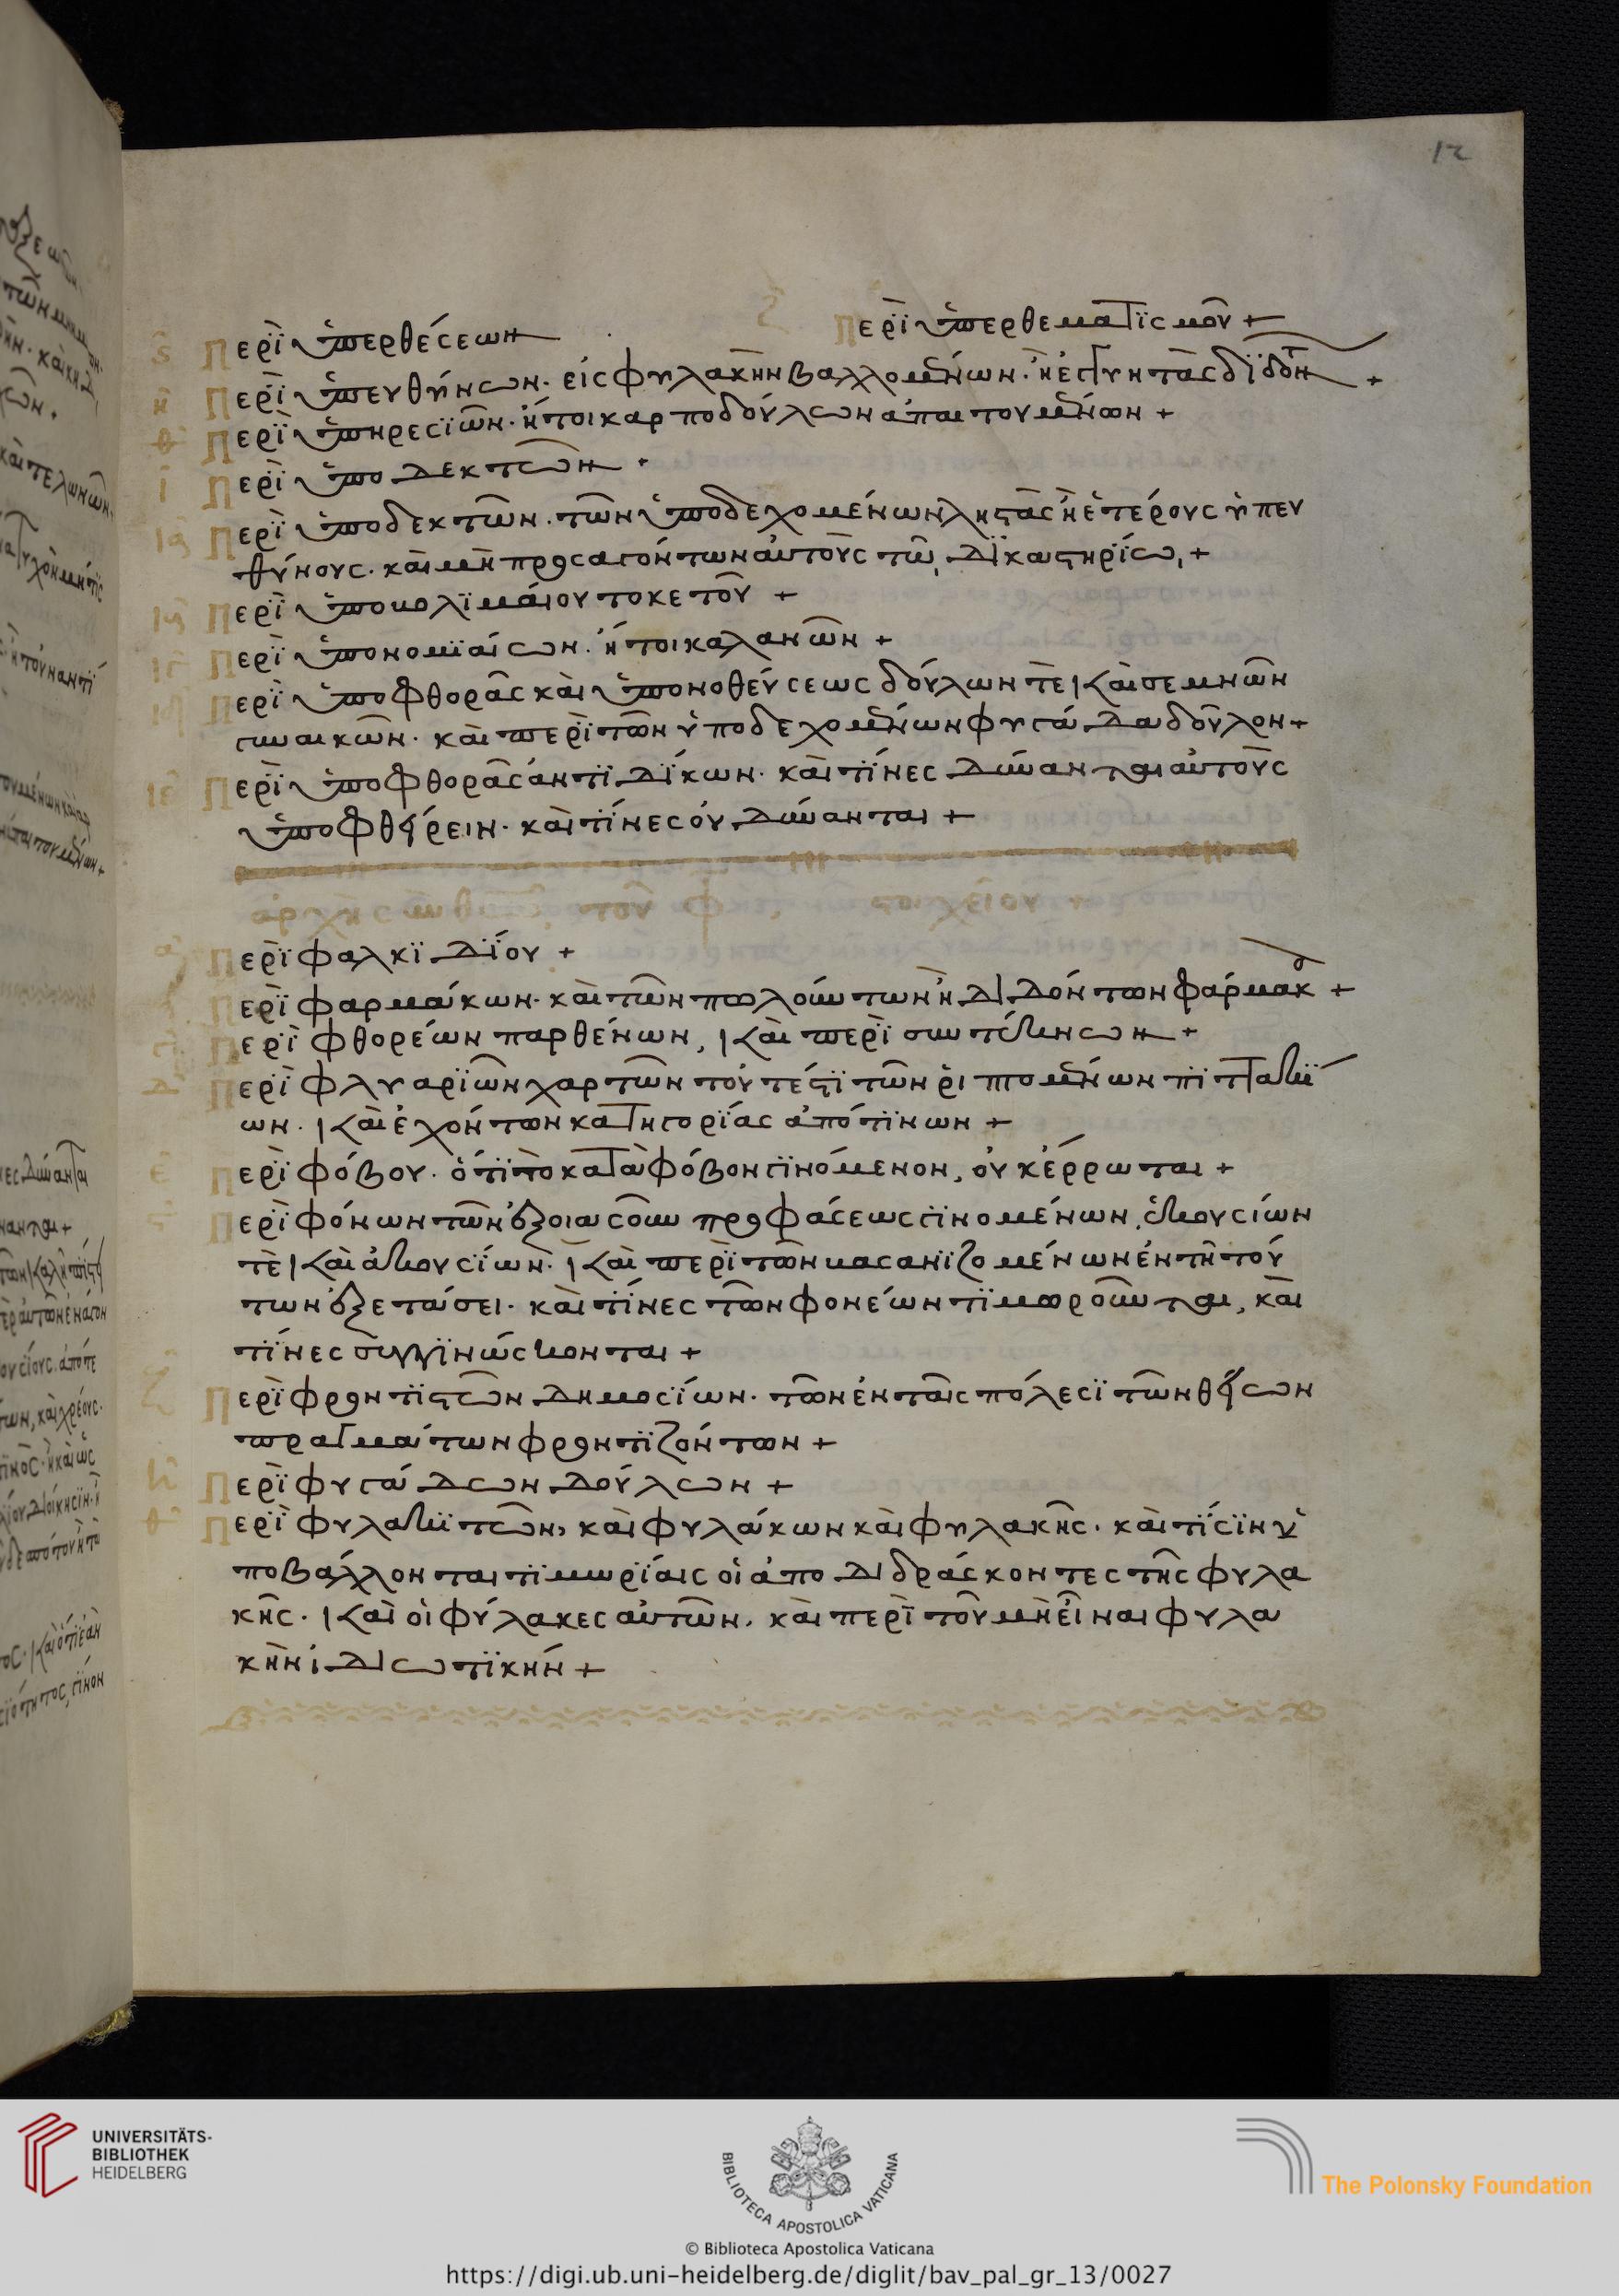 12
ς Περὶ ὑπερθέσεων ζ Περὶ ὑπερθεματισμοῦ +
η Περὶ ὑπευθύνων· εἰς φυλακὴν βαλλομένων· ἢ ἐγγυητὰς διδόντων +
θ Περὶ ὑπηρεσιῶν· ἤτοι καρποδούλων ἀπαιτουμένων +
ι Περὶ ὑποδεκτῶν +
ια Περὶ ὑποδεκτῶν· τῶν ὑποδεχομένων λῃστὰς ἢ ἑτέρους ὑπευ
θύνους· καὶ μὴ προσαγόντων αὐτοὺς τῷ δικαστηρίῳ +
ιβ Περὶ ὑποβολιμαίου τοκετοῦ +
ιγ Περὶ ὑπονομαίων· ἤτοι καλανῶν +
ιδ Περὶ ὑποφθορᾶς καὶ ὑπονοθεύσεως δούλων τὲ καὶ σεμνῶν
γυναικῶν· καὶ περὶ τῶν ὑποδεχομένων φυγάδα δοῦλον +
ιε Περὶ ὑποφθορᾶς ἀντιδίκων· καὶ τίνες δύνανται αὐτοὺς
ὑποφθείρειν· καὶ τίνες οὐ δύνανται +
ἀρχὴ σὺν θεῷ τοῦ φ στοιχείου +
α Περὶ φαλκιδίου +
β Περὶ φαρμάκων· καὶ τῶν πωλούντων ἢ διδόντων φάρμακ +
γ Περὶ φθορέων παρθένων, καὶ περὶ συντέκνων +
δ Περὶ φλυαριῶν χαρτῶν τουτέστι τῶν ῥιπτομένων πιττακί
ων· καὶ ἐχόντων κατηγορίας ἀπό τινων +
ε Περὶ φόβου· ὅτι τὸ κατὰ φόβον γινόμενον, οὐκ ἔρρωται +
ς Περὶ φόνων τῶν ἐξ οιασοῦν προφάσεως γινομένων, ἑκουσίων
τὲ καὶ ἀκουσίων· καὶ περὶ τῶν βασανιζομένων ἐν τῇ τού
των ἐξετάσει· καὶ τίνες τῶν φονέων τιμωροῦνται, καὶ
τίνες συγγινώσκονται +
ζ Περὶ φροντιστῶν δημοσίων· τῶν ἐν ταῖς πόλεσι τῶν θείων
πραγμάτων φροντιζόντων +
η Περὶ φυγάδων δούλων +
θ Περὶ φυλακιτῶν, καὶ φυλάκων καὶ φυλακῆς· καὶ τίσιν ὑ
ποβάλλονται τιμωρίαις οἱ ἀποδιδράσκοντες τῆς φυλα
κῆς· καὶ οἱ φύλακες αὐτῶν· καὶ περὶ τοῦ μὴ εἶναι φυλα
κὴν ἰδιωτικήν +
UNIVERSITÄTS-
BIBLIOTHEK
HEIDELBERG
BIBLIOTECA APOSTOLICA VATICANA
© Biblioteca Apostolica Vaticana
The Polonsky Foundation
https://digi.ub.uni-heidelberg.de/diglit/bav_pal_gr_13/0027